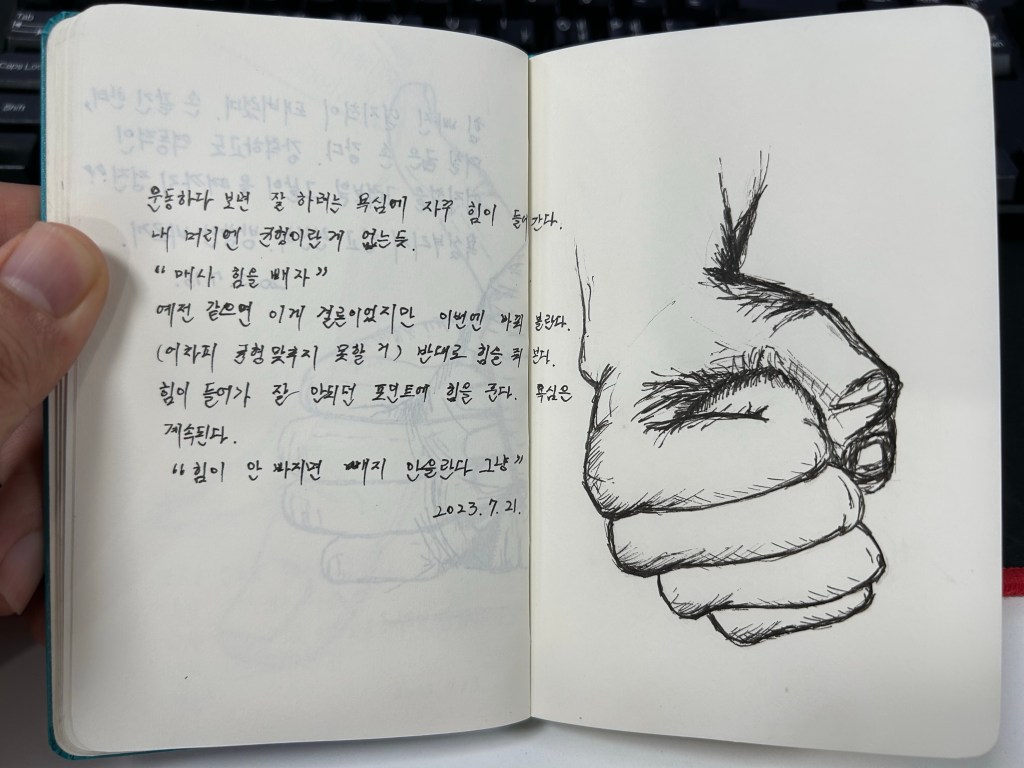 Tab
Caps Lock
Shift
운동하다 보면 잘 하려는 욕심에 자꾸 힘이 들어간다.
내 머리엔 균형이란 게 없는듯.
"매사 힘을 빼자"
예전 같으면 이게 결론이었지만 이번엔 바꿔 볼란다.
(어차피 균형 맞추지 못할 거) 반대로 힘을 줘 본다.
힘이 들어가 잘 안되던 포인트에 힘을 준다. 욕심은
계속된다.
"힘이 안 빠지면 빼지 안을란다 그냥"
2023.7.21.